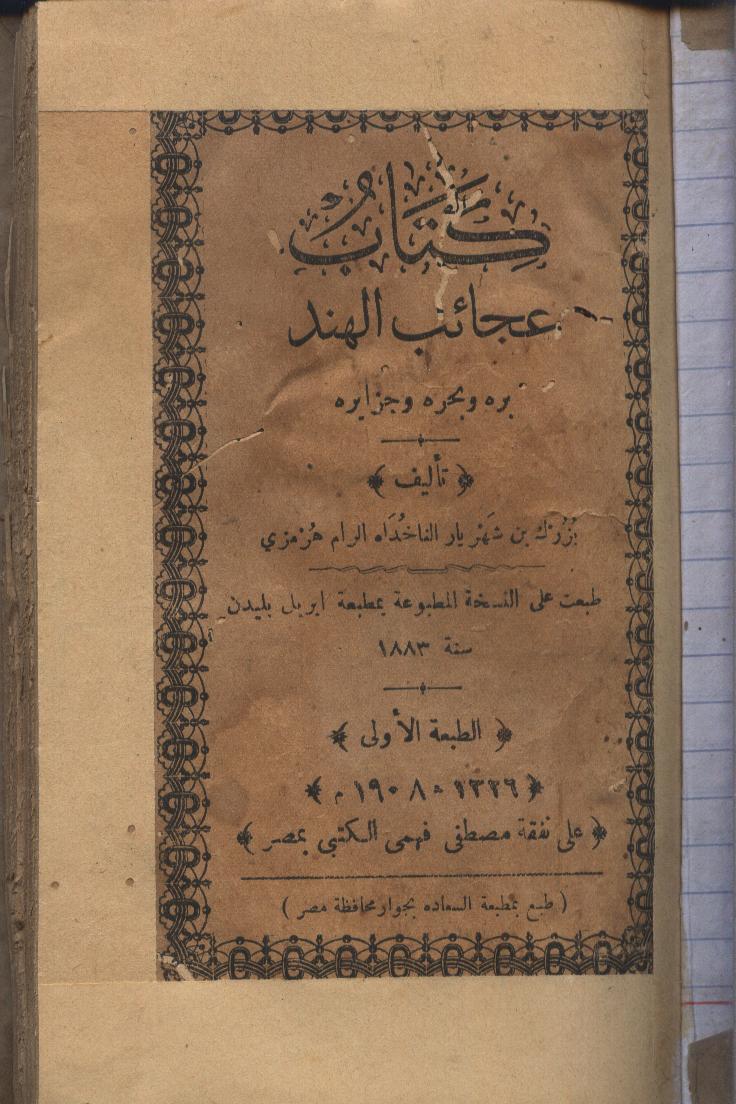 كتاب
عجائب الهند
بره وبحره وجزايره
﴿ تأليف ﴾
بُزُرْك بن شَهْريار الناخُدَاه الرام هُرْمزي
طبعت على النسخة المطبوعة بمطبعة ابريل بليدن
سنة ١٨٨٣
﴿ الطبعة الأولى ﴾
﴿ ١٣٢٦ ه ١٩٠٨ م ﴾
﴿ على نفقة مصطفى فهمى الكتبي بمصر ﴾
( طبع بمطبعة السعاده بجوار محافظة مصر )